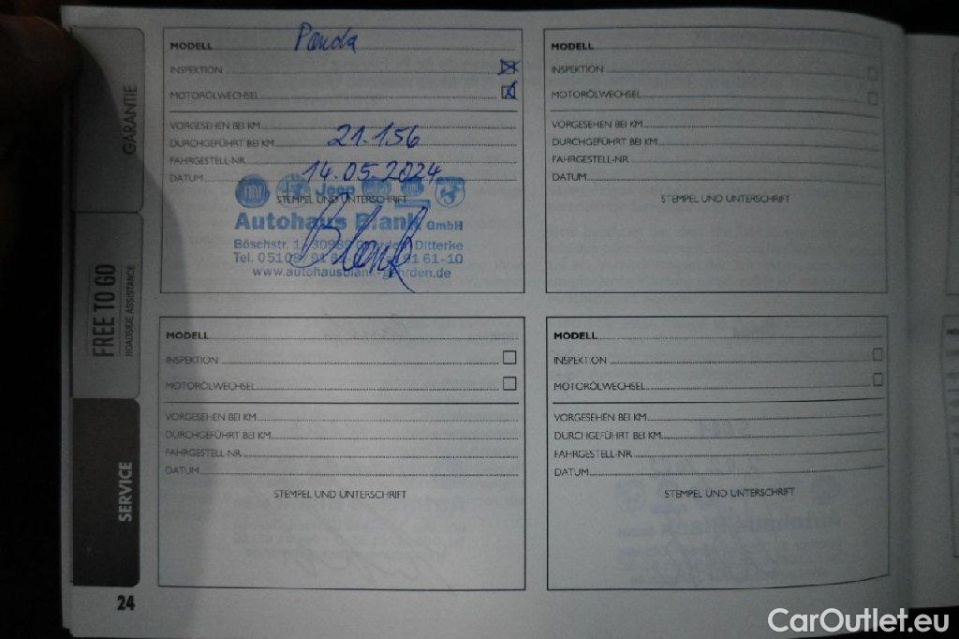 GARANTIE
FREE TO GO
ROADSIDE ASSISTANCE
SERVICE
MODELL Panda
INSPEKTION
MOTORÖLWECHSEL
VORGESEHEN BEI KM
DURCHGEFÜHRT BEI KM 21.156
FAHRGESTELL-NR.
DATUM 14.05.2024
FIAT Jeep
STEMPEL UND UNTERSCHRIFT
Autohaus Blank GmbH
Böschstr. 30989 Ditterke
Tel. 05108 91 61-10
www.autohausblank-gehrden.de
Blank
MODELL
INSPEKTION
MOTORÖLWECHSEL
VORGESEHEN BEI KM
DURCHGEFÜHRT BEI KM
FAHRGESTELL-NR.
DATUM
STEMPEL UND UNTERSCHRIFT
MODELL
INSPEKTION
MOTORÖLWECHSEL
VORGESEHEN BEI KM
DURCHGEFÜHRT BEI KM
FAHRGESTELL-NR.
DATUM
STEMPEL UND UNTERSCHRIFT
MODELL
INSPEKTION
MOTORÖLWECHSEL
VORGESEHEN BEI KM
DURCHGEFÜHRT BEI KM
FAHRGESTELL-NR.
DATUM
STEMPEL UND UNTERSCHRIFT
24
CarOutlet.eu